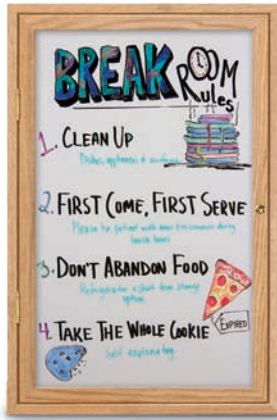 BREAK ROOM
Rules
1. CLEAN UP
Dishes, appliances & surfaces
2. FIRST COME, FIRST SERVE
Please be patient with others & microwaves during
lunch hours
3. DON'T ABANDON FOOD
Refrigerator is short term storage
option
4. TAKE THE WHOLE COOKIE
Self explanatory.
EXPIRED